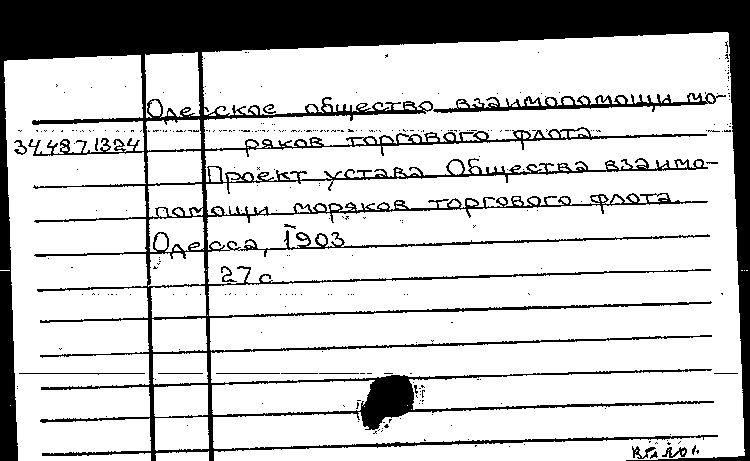 Одесское общество взаимопомощи мо-
34.487.1324 ряков торгового флота.
Проект устава Общества взаимо-
помощи моряков торгового флота.
Одесса, 1903
27 с